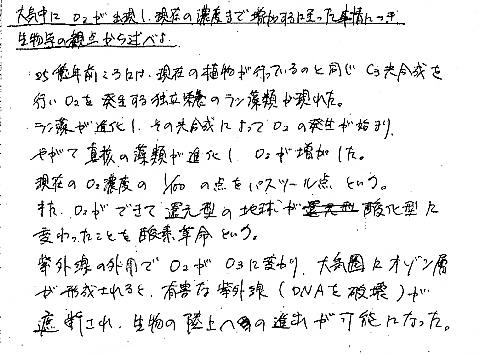 大気中に O₂が出現し、現在の濃度まで増加するに至った事情につき
生物学の観点から述べよ。
25億年前ころには、現在の植物が行っているのと同じ C₃光合成を
行い O₂を発生する独立栄養のラン藻類が現れた。
ラン藻が進化し、その光合成によって O₂の発生が始まり、
やがて真核の藻類が進化し、O₂が増加した。
現在のO₂濃度の 1/100 の点をパスツール点という。
また、O₂ができて還元型の地球が還元型酸化型に
変わったことを酸素革命という。
紫外線の作用で O₂が O₃に変わり、大気圏にオゾン層
が形成されると、有害な紫外線（DNAを破壊）が
遮断され、生物の陸上への進出が可能になった。